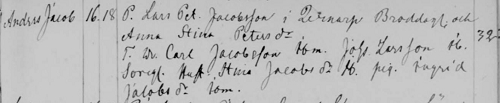 Andres Jacob 16. 18 P. Lars Pet. Jacobsson i Broddag. och
Anna Stina Peters dr 32
T. Dr. Carl Jacobsson ibm. Johs Larsson ib.
Hust. Stina Jacobs dr ib. pig. Ingrid
Jacobs dr ibm.